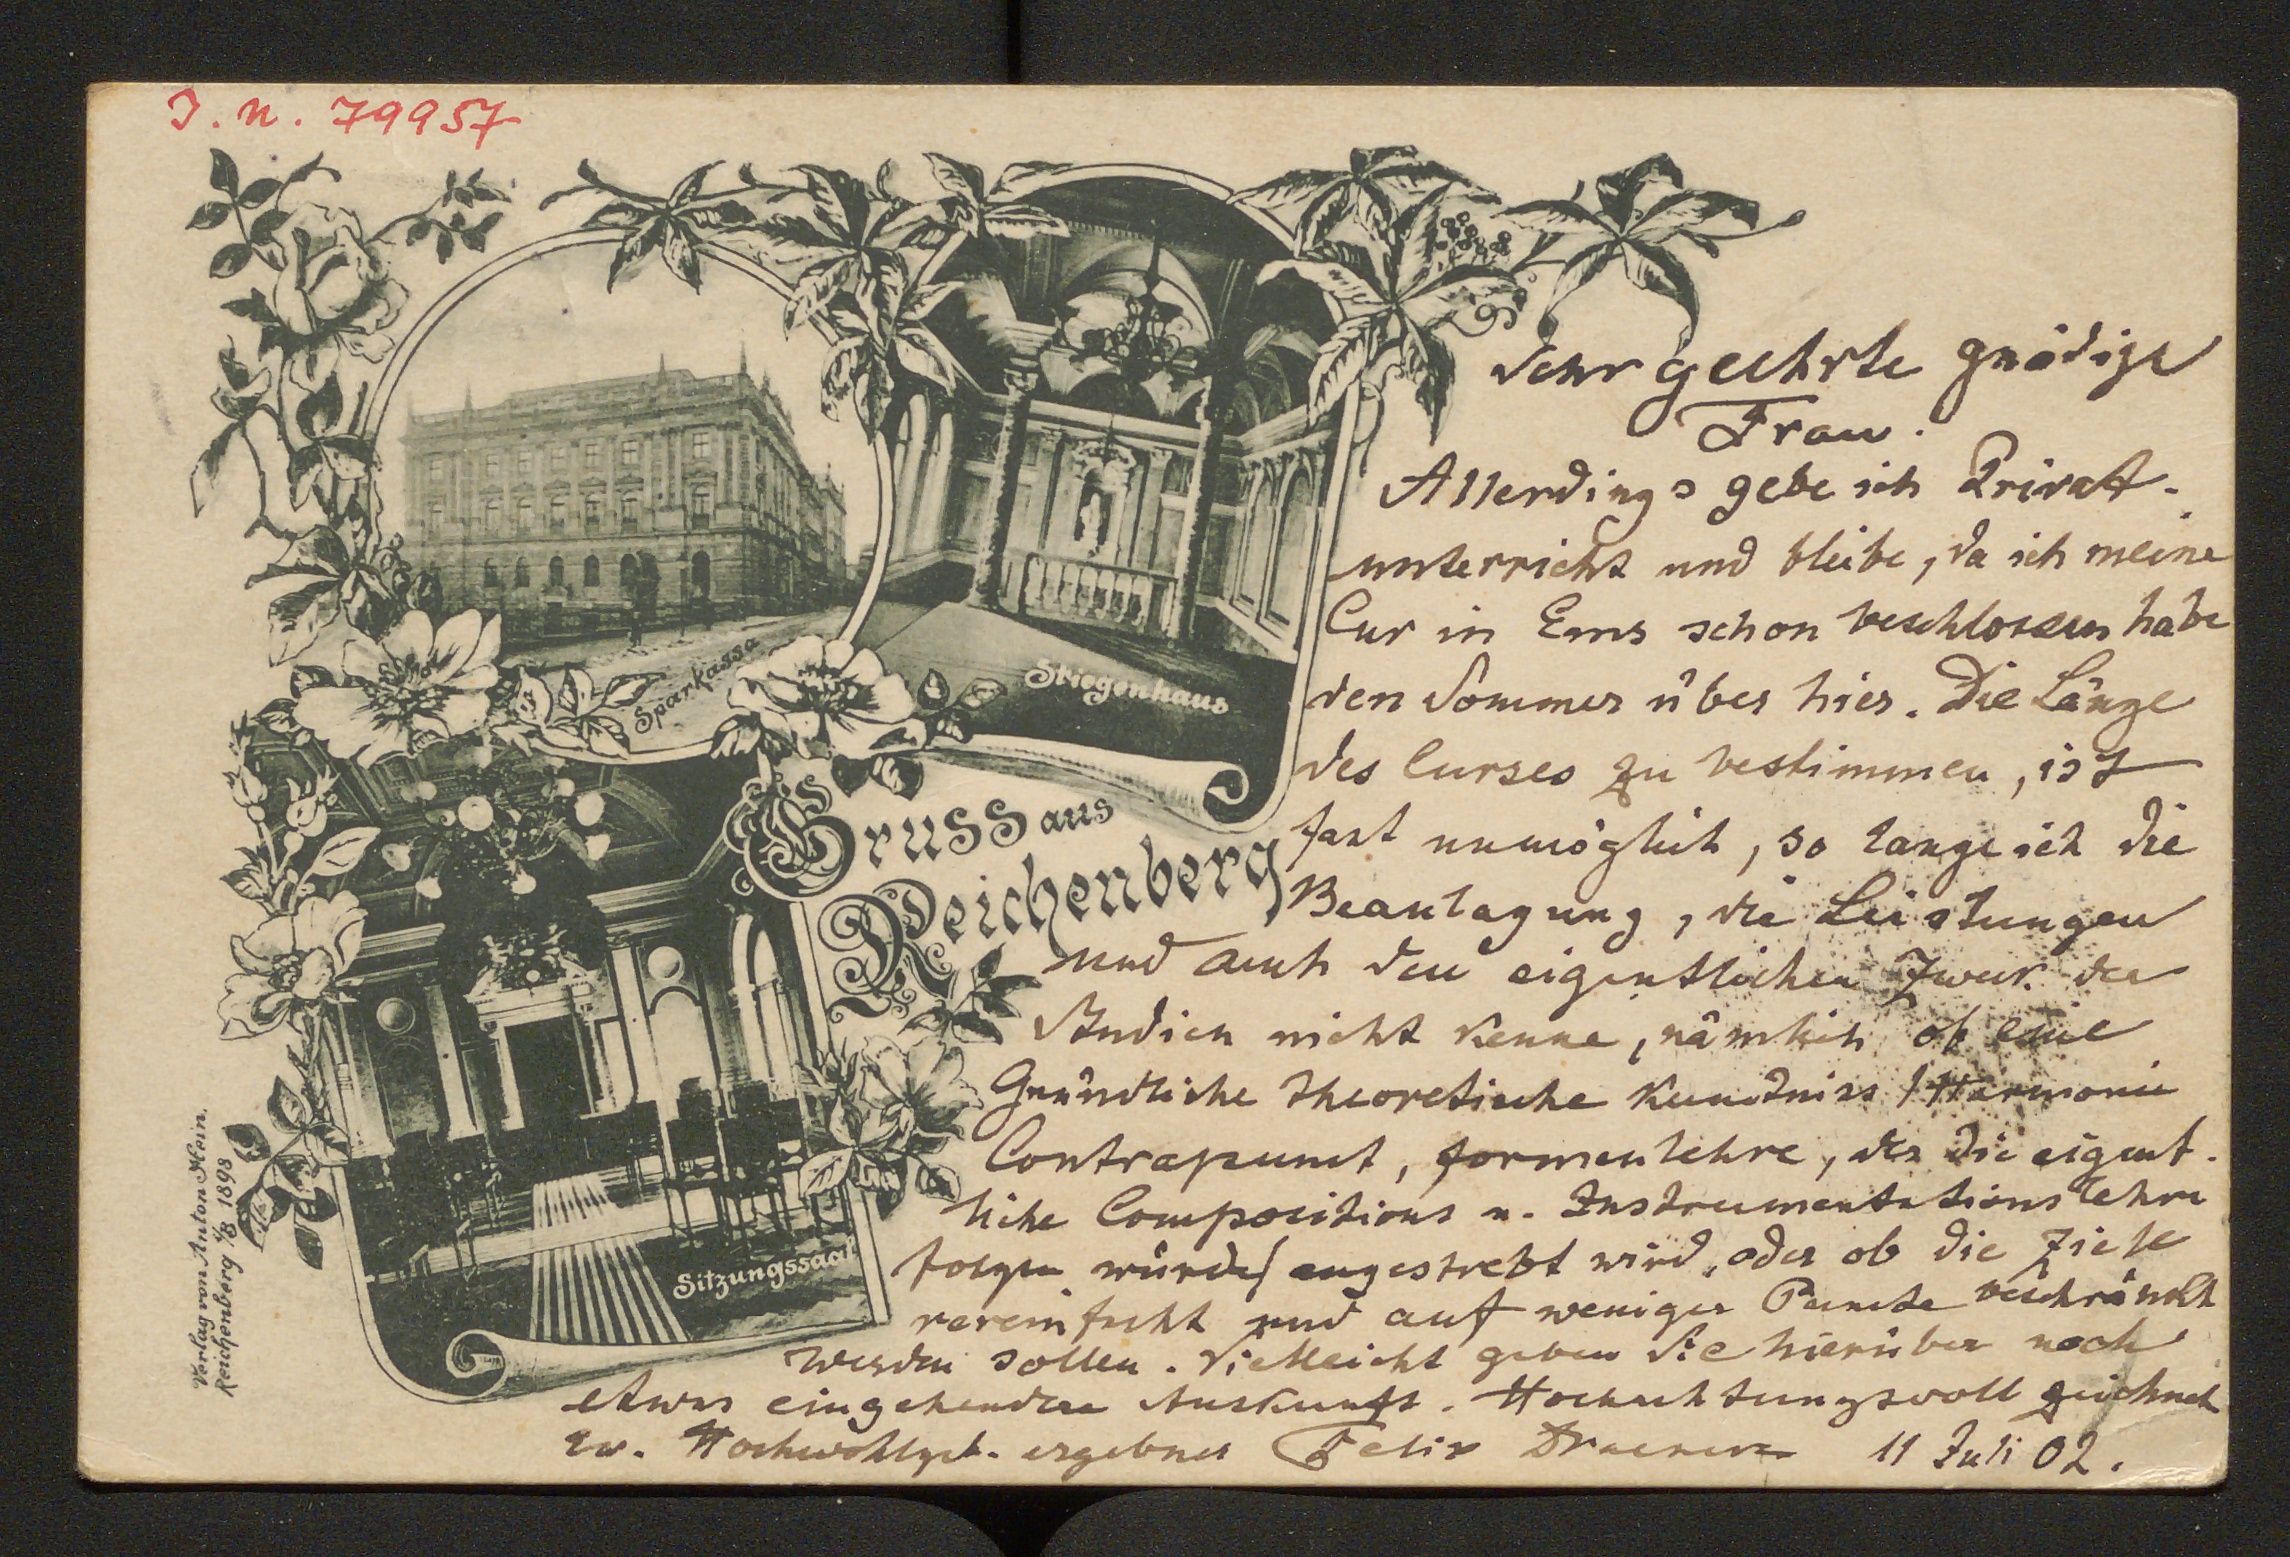 I. N. 79957
Sparkassa
Stiegenhaus
Gruss aus
Reichenberg
Sitzungssaal
Verlag von Anton Hein,
Reichenberg 1/8 1898
Sehr geehrte gnädige
Frau.
Allerdings gebe ich Privat-
unterricht und bleibe, da ich meine
Cur in Ems schon beschlossen habe
den Sommer über hier. Die Länge
des Curses zu bestimmen, ist
fast unmöglich, so lange ich die
Beanlagung, die Leistungen
und auch den eigentlichen Zweck der
Studien nicht kenne, nämlich ob eine
Gründliche theoretische Kenntniss /Harmonie
Contrapunct, Formenlehre, der die eigent-
liche Compositions u. Instrumentationslehre
folgen würde/ angestrebt wird, oder ob die Ziele
vereinfacht und auf weniger Puncte beschränkt
werden sollen. Vielleicht geben Sie hierüber noch
etwas eingehendere Auskunft. Hochachtungsvoll zeichnet
Ew. Hochwohlgeb. ergebner Felix Draeseke 11 Juli 02.